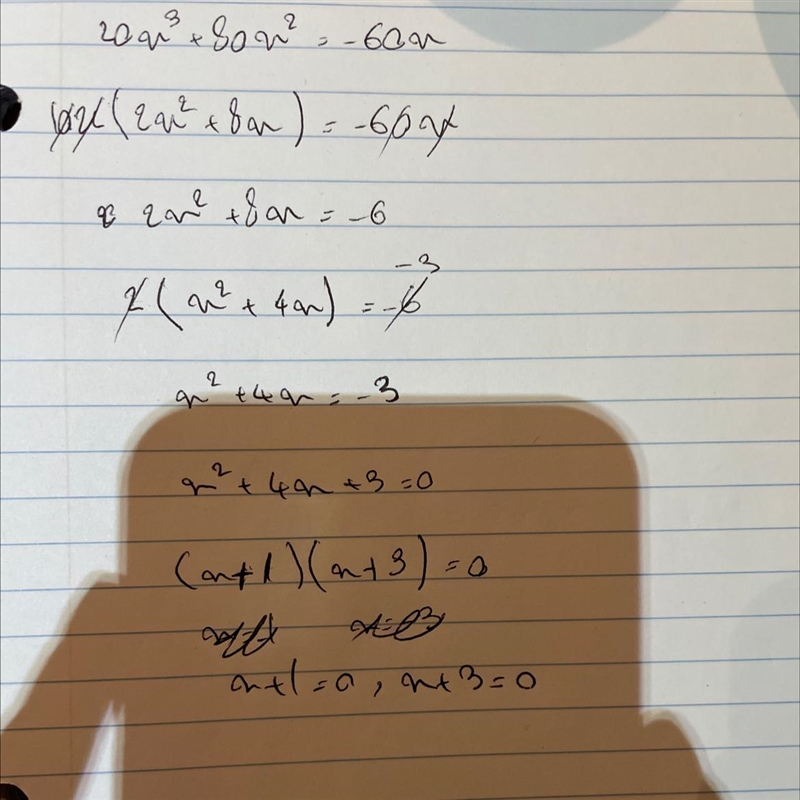 20x³ + 80x² = -60x
10x(2x² + 8x) = -60x
2x² + 8x = -6
-3
2(x² + 4x) = -6
x² + 4x = -3
x² + 4x + 3 = 0
(x+1)(x+3) = 0
x+1 = 0, x+3 = 0